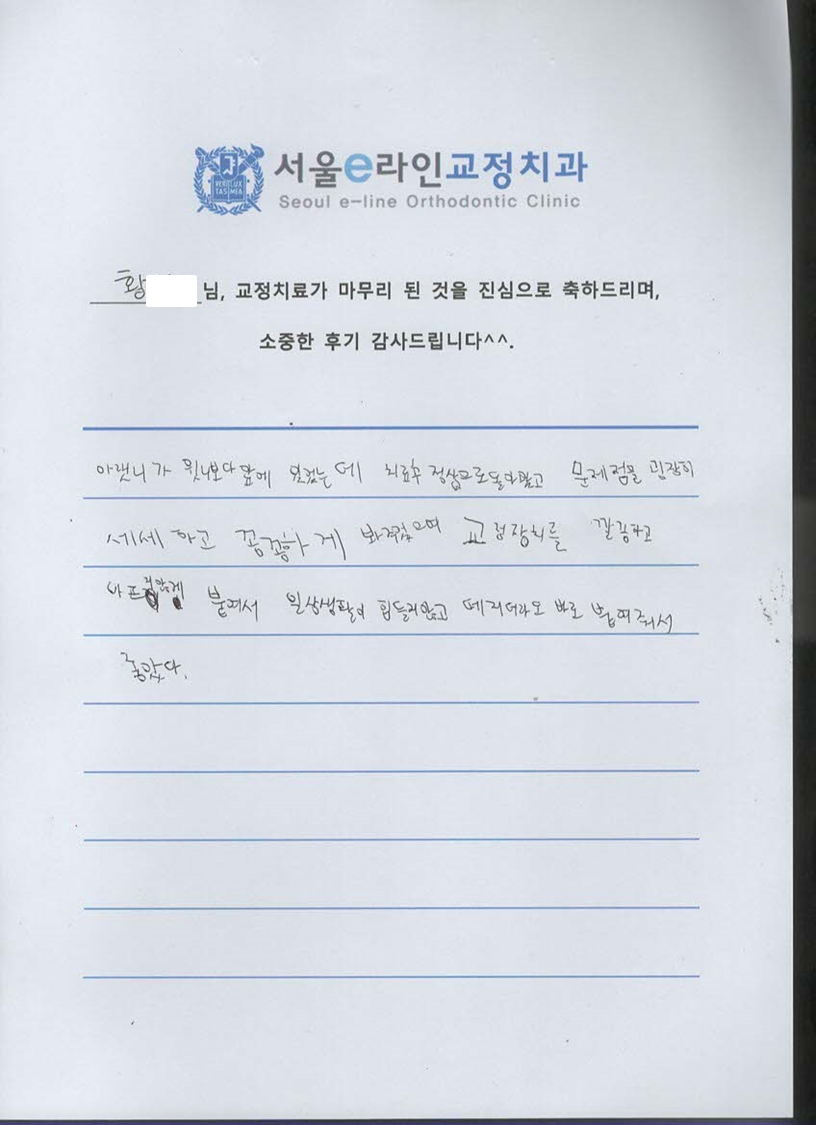 VERI LUX TAS MEA
서울e라인교정치과
Seoul e-line Orthodontic Clinic
황 님, 교정치료가 마무리 된 것을 진심으로 축하드리며,
소중한 후기 감사드립니다^^.
아랫니가 윗니보다 앞에 있었는데 치료후 정상으로돌아왔고 문제점을 굉장히
세세하고 꼼꼼하게 봐주셨으며 교정장치를 깔끔하고
아프지않게 붙여서 일상생활이 힘들지않고 떼지더라도 바로 붙여줘서
좋았다.